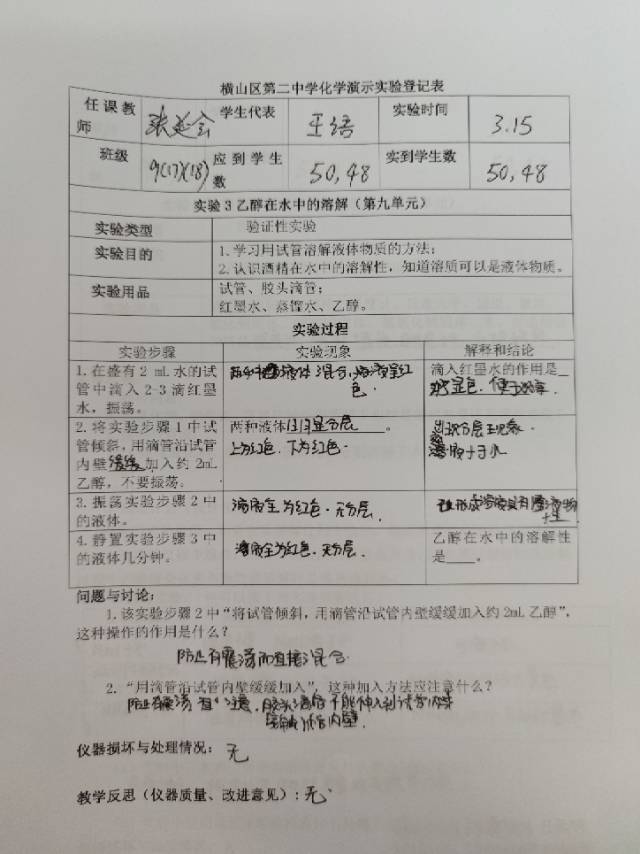 横山区第二中学化学演示实验登记表
任课教师 张延会 学生代表 王培 实验时间 3.15
班级 9(17)(18) 应到学生数 50,48 实到学生数 50,48
实验3乙醇在水中的溶解（第九单元）
实验类型 验证性实验
实验目的 1.学习用试管溶解液体物质的方法；
2.认识酒精在水中的溶解性，知道溶质可以是液体物质。
实验用品 试管、胶头滴管；
红墨水、蒸馏水、乙醇。
实验过程
实验步骤 实验现象 解释和结论
1.在盛有2 mL水的试管中滴入2-3滴红墨水，振荡。
液体混合，溶液呈红色.
滴入红墨水的作用是
显色.便于观察.
2.将实验步骤1中试管倾斜，用滴管沿试管内壁缓缓加入约2mL乙醇，不要振荡。
两种液体出现分层。
上为红色.下为红色.
出现分层现象.
3.振荡实验步骤2中的液体。
溶液全为红色.无分层.
4.静置实验步骤3中的液体几分钟。
溶液全为红色.无分层.
乙醇在水中的溶解性是____。
问题与讨论：
1.该实验步骤2中“将试管倾斜，用滴管沿试管内壁缓缓加入约2mL乙醇”，
这种操作的作用是什么？
防止有震荡而直接混合
2.“用滴管沿试管内壁缓缓加入”，这种加入方法应注意什么？
防止震荡 胶头滴管不能伸入到试管内
接触试管内壁.
仪器损坏与处理情况：无
教学反思（仪器质量、改进意见）：无